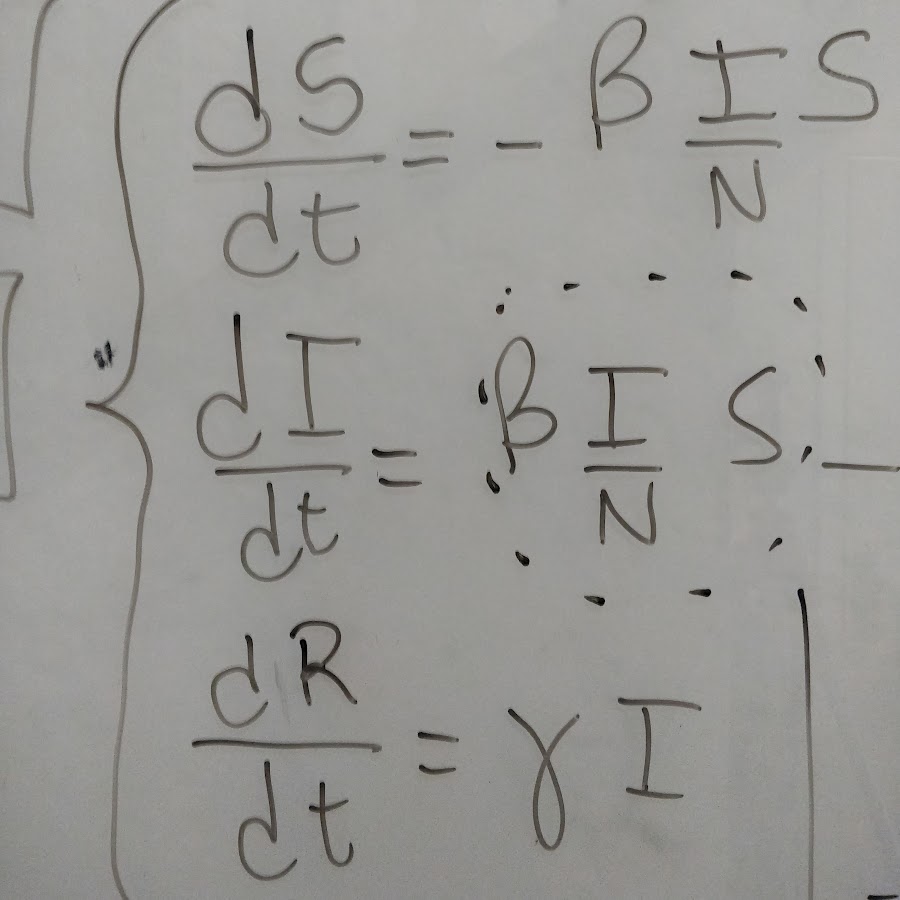 dS/dt = - β I/N S
dI/dt = β I/N S -
dR/dt = γ I